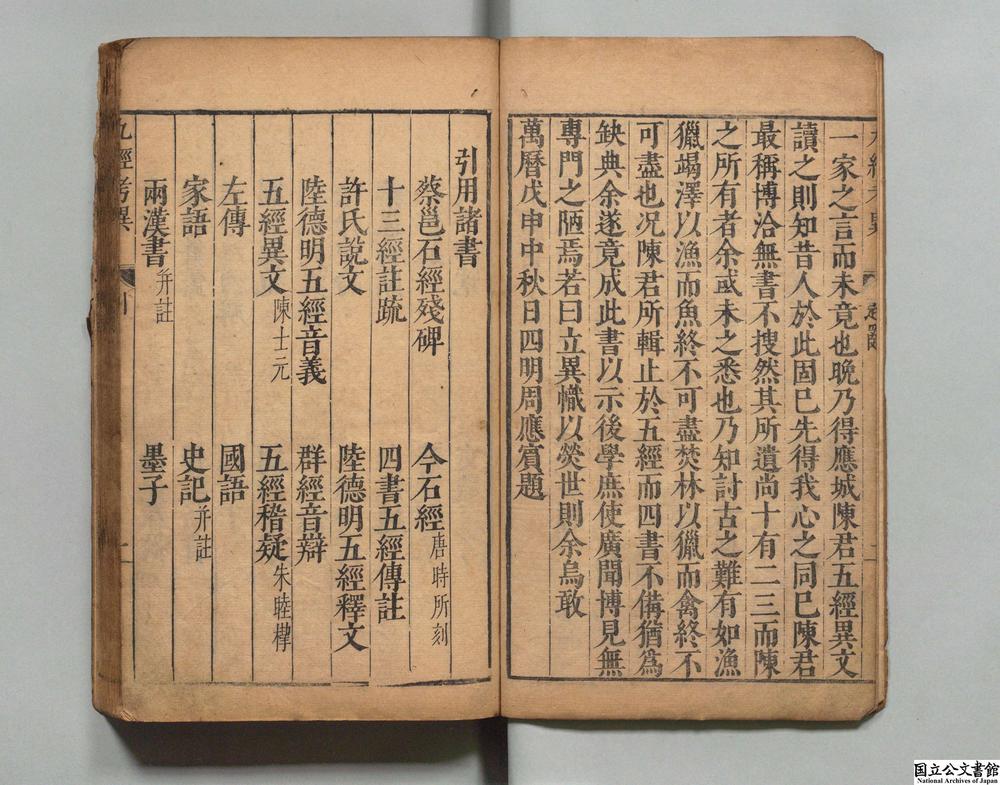 一家之言而未竟也晚乃得應城陳君五經異文
讀之則知昔人於此固已先得我心之同已陳君
最稱博洽無書不搜然其所遺尚十有二三而陳
之所有者余或未之悉也乃知討古之難有如漁
獵竭澤以漁而魚終不可盡焚林以獵而禽終不
可盡也况陳君所輯止於五經而四書不備猶為
缺典余遂竟成此書以示後學庶使廣聞博見無
專門之陋焉若曰立異幟以熒世則余烏敢
萬曆戊申中秋日四明周應賔題
引用諸書
蔡邕石經殘碑 今石經唐時所刻
十三經註疏 四書五經傳註
許氏說文 陸德明五經釋文
陸德明五經音義 群經音辯
五經異文陳士元 五經稽疑朱睦㮮
左傳 國語
家語 史記并註
兩漢書并註 墨子
九經考異 引 一
国立公文書館
National Archives of Japan